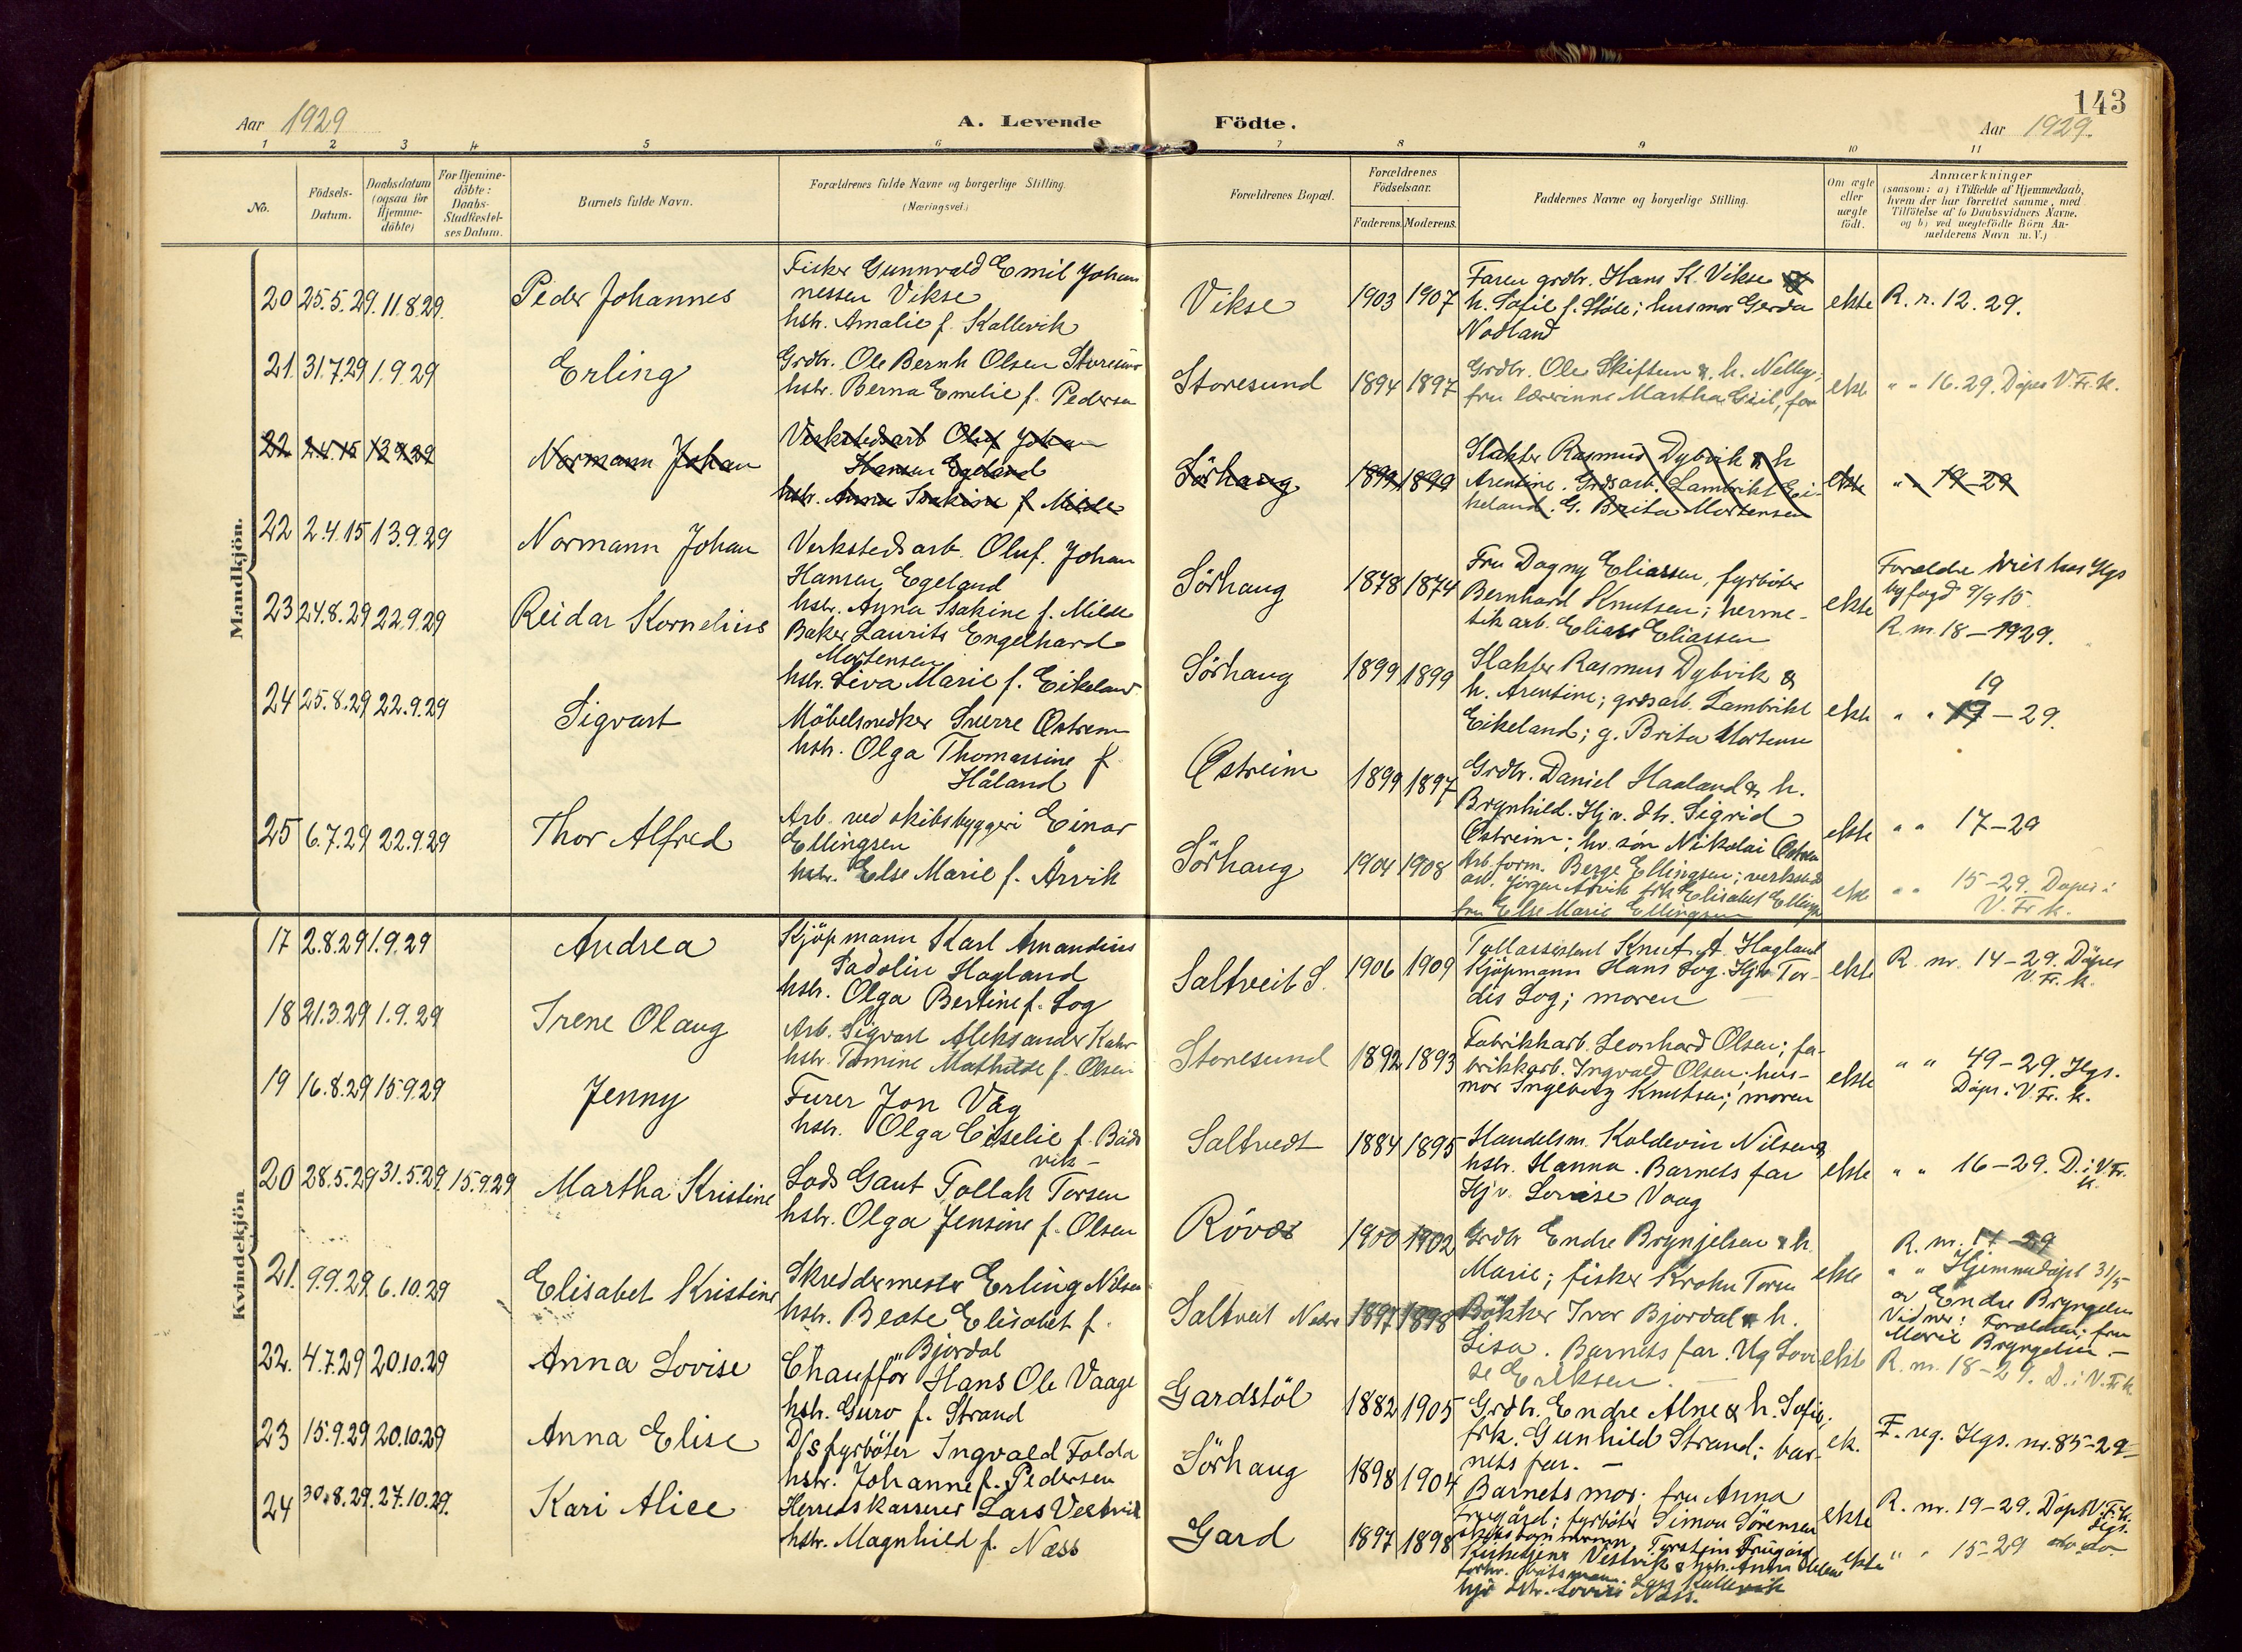 143
Aar 1929
A. Levende Födte.
Aar 1929.
1 2 3 4 5 6 7 8 9 10 11
No.
Födsels-Datum.
Daabsdatum (ogsaa for Hjemme-döbte)
For Hjemme-döbte: Daabs-Stadfæstel-ses Datum.
Barnets fulde Navn.
Forældrenes fulde Navne og borgerlige Stilling.
(Næringsvei.)
Forældrenes Bopæl.
Forældrenes Födselsaar.
Faderens. Moderens.
Faddernes Navne og borgerlige Stilling.
Om ægte eller uægte födt.
Anmærkninger
(saasom: a) i Tilfælde af Hjemmedaab,
hvem der har forrettet samme, med
Tilföielse af to Daabsvidners Navne.
og b) ved uægtefödte Börn An-
melderens Navn m. V.)
Mandkjön.
20 25.5.29. 11.8.29. Peder Johannes
Fisker Gunnvald Emil Johan
nessen Vikse
hstr. Amalie f. Kallevik
Vikse 1903 1907
Faren grdbr. Hans K. Vikse
h. Sofie f. Støle; husmor Gerda
Nodland
ekte R. n. 12. 29.
21. 31.7.29 1.9.29 Erling
Grdbr. Ole Bernh Olsen Storesund
hstr. Berna Emelie f. Pedersen
Storesund 1894 1897
Grdbr. Ole Skiftun & h. Nelly;
fru lærerinne Martha, far
ekte " " 16.29. Døpes V. Fr. k.
22 2.4.15 13.9.29 Normann Johan
Verkstedsarb Oluf Johan
Hansen Egeland
hstr. Anna Isakine f. Milde
Sörhaug 1899 1899
Slakter Rasmus Dybvik & h
Arentine. Grdsarb. Lambrikt Ei-
keland. G. Brita Mortensen
ekte " " 19-29
22 2.4.15 13.9.29 Normann Johan
Verkstedsarb. Oluf. Johan
Hansen Egeland
hstr. Anna Isakine f. Milde
Sörhaug 1878 1874
Fru Dagny Eliassen, fyrböter
Bernhard Knutsen; herme-
tikarb. Elias Eliassen
ekte
Forældre viet hos Hgs
byfogd 9/9 15.
R. nr. 18-1929.
23 24.8.29 22.9.29 Reidar Kornelius
Baker Laurits Engelhard
Mortensen
hstr. Siva Marie f. Eikeland
Sörhaug 1899 1899
Slakter Rasmus Dybvik &
h. Arentine; grdsarb. Lambrikt
Eikeland; g. Brita Mortensen
ekte " " 19 17-29.
24 25.8.29 22.9.29 Sigvart
Möbelsnedker Sverre Østrem
hstr. Olga Thomassine f
Håland
Østreim 1899 1897
Grdbr. Daniel Haaland & h.
Brynhild. Hjv. dtr. Sigrid
Østreim; hv. sön Nikolai Østrem
ekte " " 17-29
25 6.7.29 22.9.29 Thor Alfred
Arb. ved skibsbyggeri Einar
Ellingsen
hstr. Else Marie f. Årvik
Sörhaug 1904 1908
Arb. form. Berge Ellingsen; verksted
arb. Jörgen Årvik frk Elisabet Ellingsen
fru Else Marie Ellingsen
ekte " " 15-29. Døpes i
V. Fr. k.
Kvindekjön
17 2.8.29 1.9.29 Andrea
Kjöpmann Karl Amandius
Padolin Hagland
hstr. Olga Bertine f. Log
Saltveit S. 1906 1909
Tollassistent Knut A. Hagland
Kjöpmann Hans Log. Hjv. Tor-
dis Log; moren
ekte R. nr. 14-29. Döpes
V. Fr. k.
18 21.3.29 1.9.29 Irene Olaug
Arb. Sigvart Aleksander Kahr
hstr. Tomine Mathilde f. Olsen
Storesund 1892 1893
Fabrikkarb. Leonhard Olsen; fa-
brikkarb. Ingvald Olsen; hus-
mor Ingeborg Knutsen; moren
ekte " " 49-29. Hgs.
Döpes i V. Fr. k.
19 16.8.29 15.9.29 Jenny
Furer Jon Våg
hstr. Olga Giselie f. Båds
vik
Saltvedt 1884 1895
Handelsm. Koldevin Nilsen &
hstr. Hanna. Barnets far
Hjv. Lovise Vaag
ekte " " 16-29. D. i V. Fr.
k.
20 28.5.29 31.5.29. 15.9.29 Martha Kristine
Lods Gaut Tollak Torsen
hstr. Olga Jensine f. Olsen
Rövær 1900 1902
Grdbr Endre Brynjelsen & h.
Marie; fisker Krohn Torsen
ekte R. nr. 11-29
" " Hjemmedöpt 31/5
av Endre Bryngelsen
Vidner: Foreldre; fru
Marie Bryngelsen.-
21. 9.9.29 6.10.29 Elisabet Kristine
Skreddermester Erling Nilsen
hstr. Beate Elisabet f.
Bjordal
Saltveit Nedre 1897 1898
Bökker Ivar Bjordal & h.
Lisa. Barnets far. Ug Lovi
se Eriksen.
ekte R. nr. 18-29. D. i V. Fr k
22. 4.7.29 20.10.29 Anna Lovise
Chaufför Hans Ole Vaage
hstr. Guro f. Strand
Gardstöl 1882 1905
Grdbr. Endre Alne & h. Sofie;
frk. Gunhild Strand; bar-
nets far. -
ek. F. reg. Hgs. nr. 85-29
23 15.9.29 20.10.29 Anna Elise
D/s fyrböter Ingvald Folda
hstr. Johanne f. Pedersen
Sörhaug 1898 1904
Barnets mor; fru Anna
Frugård; fyrböter Simon Sörensen
Torstein Frugård
ekte R. nr. 19-29. Döpt V. Fr. k.
Hgs.
24 30.8.29. 27.10.29. Kari Alice
Herredskasserer Lars Vestvik
hstr. Magnhild f. Næss
Gard 1897 1898
Vestvik & hstr. Anna
Lars Kallevik
hjv dtr. Lovise Næss.
ekte " " 15-29 do. do.